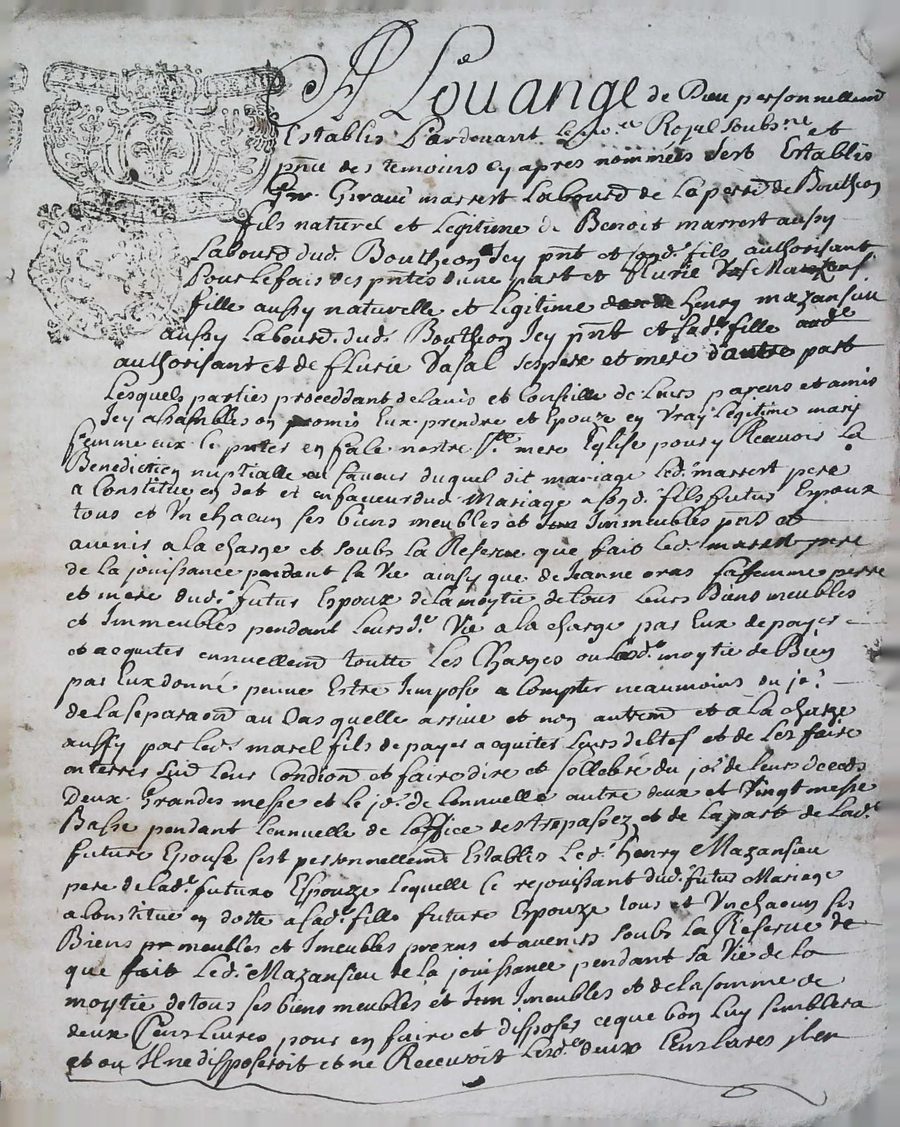 A Louange de Dieu personnellemt
Establis Pardevant le no.re Royal soubs.ne et
pnce des temoins cy apres nommés sest Establis
Girau marrest Labourd de la perrd de Boutheon
fils naturel et Legitime de Benoit marrest aussy
Labourd dud. Boutheon Icy pnt et sond. fils authorisant
Pour le fait des pntes dune part et flurie Mazansi
fille aussy naturelle et Legitime Henry mazansieu
aussy Labourd. dud. Boutheon Icy pnt et sad. fille
authorisant et de flurie Dasal ses pere et mere dautre part
Lesquels parties proceddant de lavis et Conseille de Leurs parens et amis
Icy assembles on promis Eux prendre et Epouze en Vray Legitime mary
femme eux se pntes en face nostre Ste mere Eglise pour y Recevoir La
Benediction nuptialle en faveur duquel dit mariage Led. marrest pere
a Constitue en dot et en faveur dud Mariage a sond. fils futur Epoux
tous et Un chacun ses biens meubles et Immeubles pnts et
avenir a la charge et soubs La Reserve que fait Led. marest pere
de la jouissance pendant sa Vie ainsy que de Jeanne oras sa femme perre
et mere dud. futur Espoux de la moytie de tous Leurs Biens meubles
et Immeubles pendant Leursd. Vie a la charge par Eux de payer
et acquiter ennuellemt toutte Les Charges ou Lad. moytie de Bien
par Eux donné peuve Estre Imposé a Compter neaumoins du jo.r
de la separaon au Cas quelle arrive et non autremt et a la charge
aussy par led. marel fils de payer acquiter Leurs debtes et de Les faire
enterrer suit Leur Condion et faire dire et sellebre du jo.r de leur deceds
Deux Grandes messe et le jo.r de Lennuelle autre deux et Vingt messe
Basse pendant Lennuelle de Loffice des trepassez et de La part de Lad.
future Epouse sest personnellemt Establis Led. Henry Mazansieu
pere de Lad. future Espouze Lequelle se rejouissant dud. futur Mariage
a Constitue en dotte a sad. fille future Espouze tous et Un chacun ses
Biens meubles et Imeubles prexns et avenirs soubs La Reserve
que fait Led. Mazansieu de la jouissance pendant sa Vie de la
moytie de tous ses biens meubles et Imeubles et de la somme de
deux Cens Livres pour en faire et disposer ce que bon Luy semblera
et ou Il ne disposeroit et ne Recevoit Lesd. deux Cens Livres